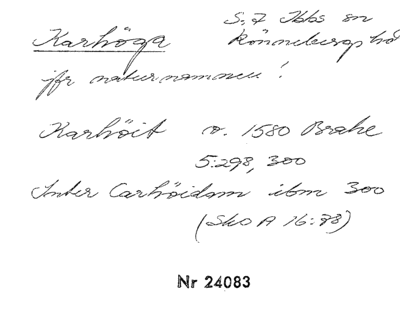 S. 7 Ibbs sn
Karhöga Rönnebergs hd
jfr naturnamnen!
Karhöit v. 1580 Brahe
5:298, 300
Inter Carhöidam ibm 300
(Sko A 16:88)
Nr 24083